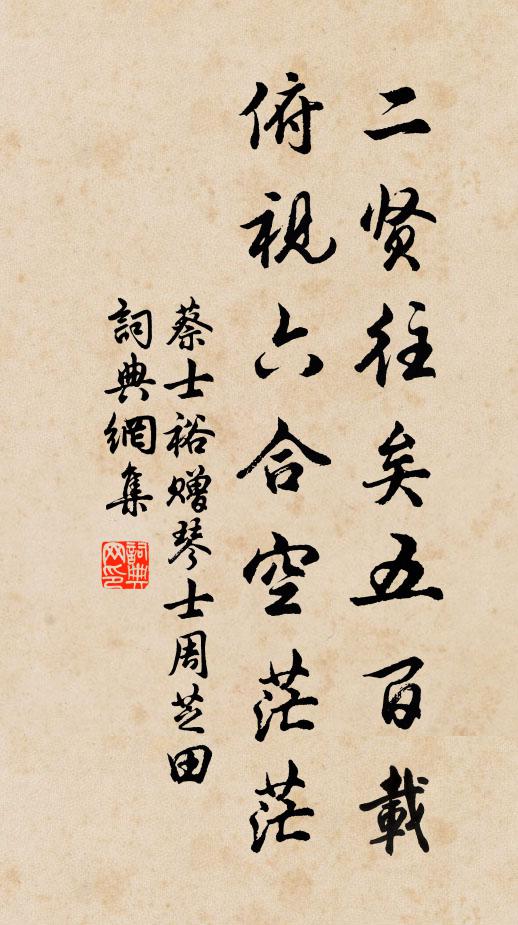 二贤往矣五百載
俯視六合空茫茫
蔡士裕赠琴士周芝田
詞典網集
詞典网印